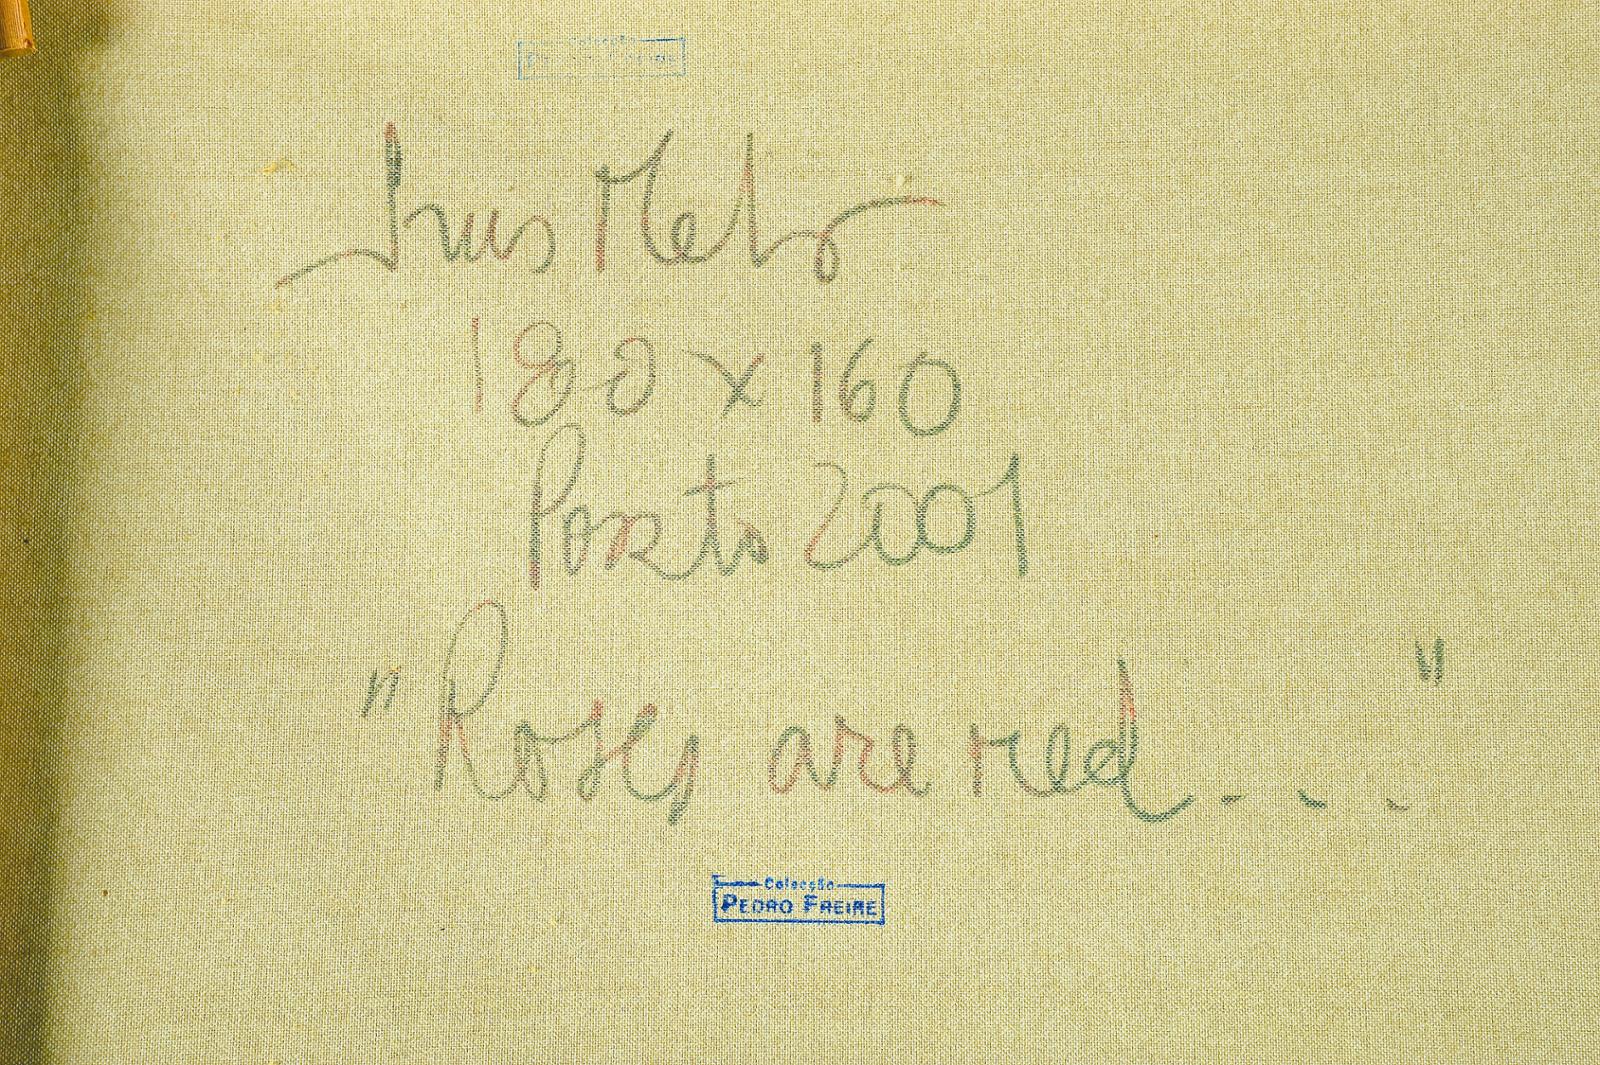 Colecção
PEDRO FREIRE
Luis Melo
180 x 160
Porto 2001
"Roses are red...."
Colecção
PEDRO FREIRE